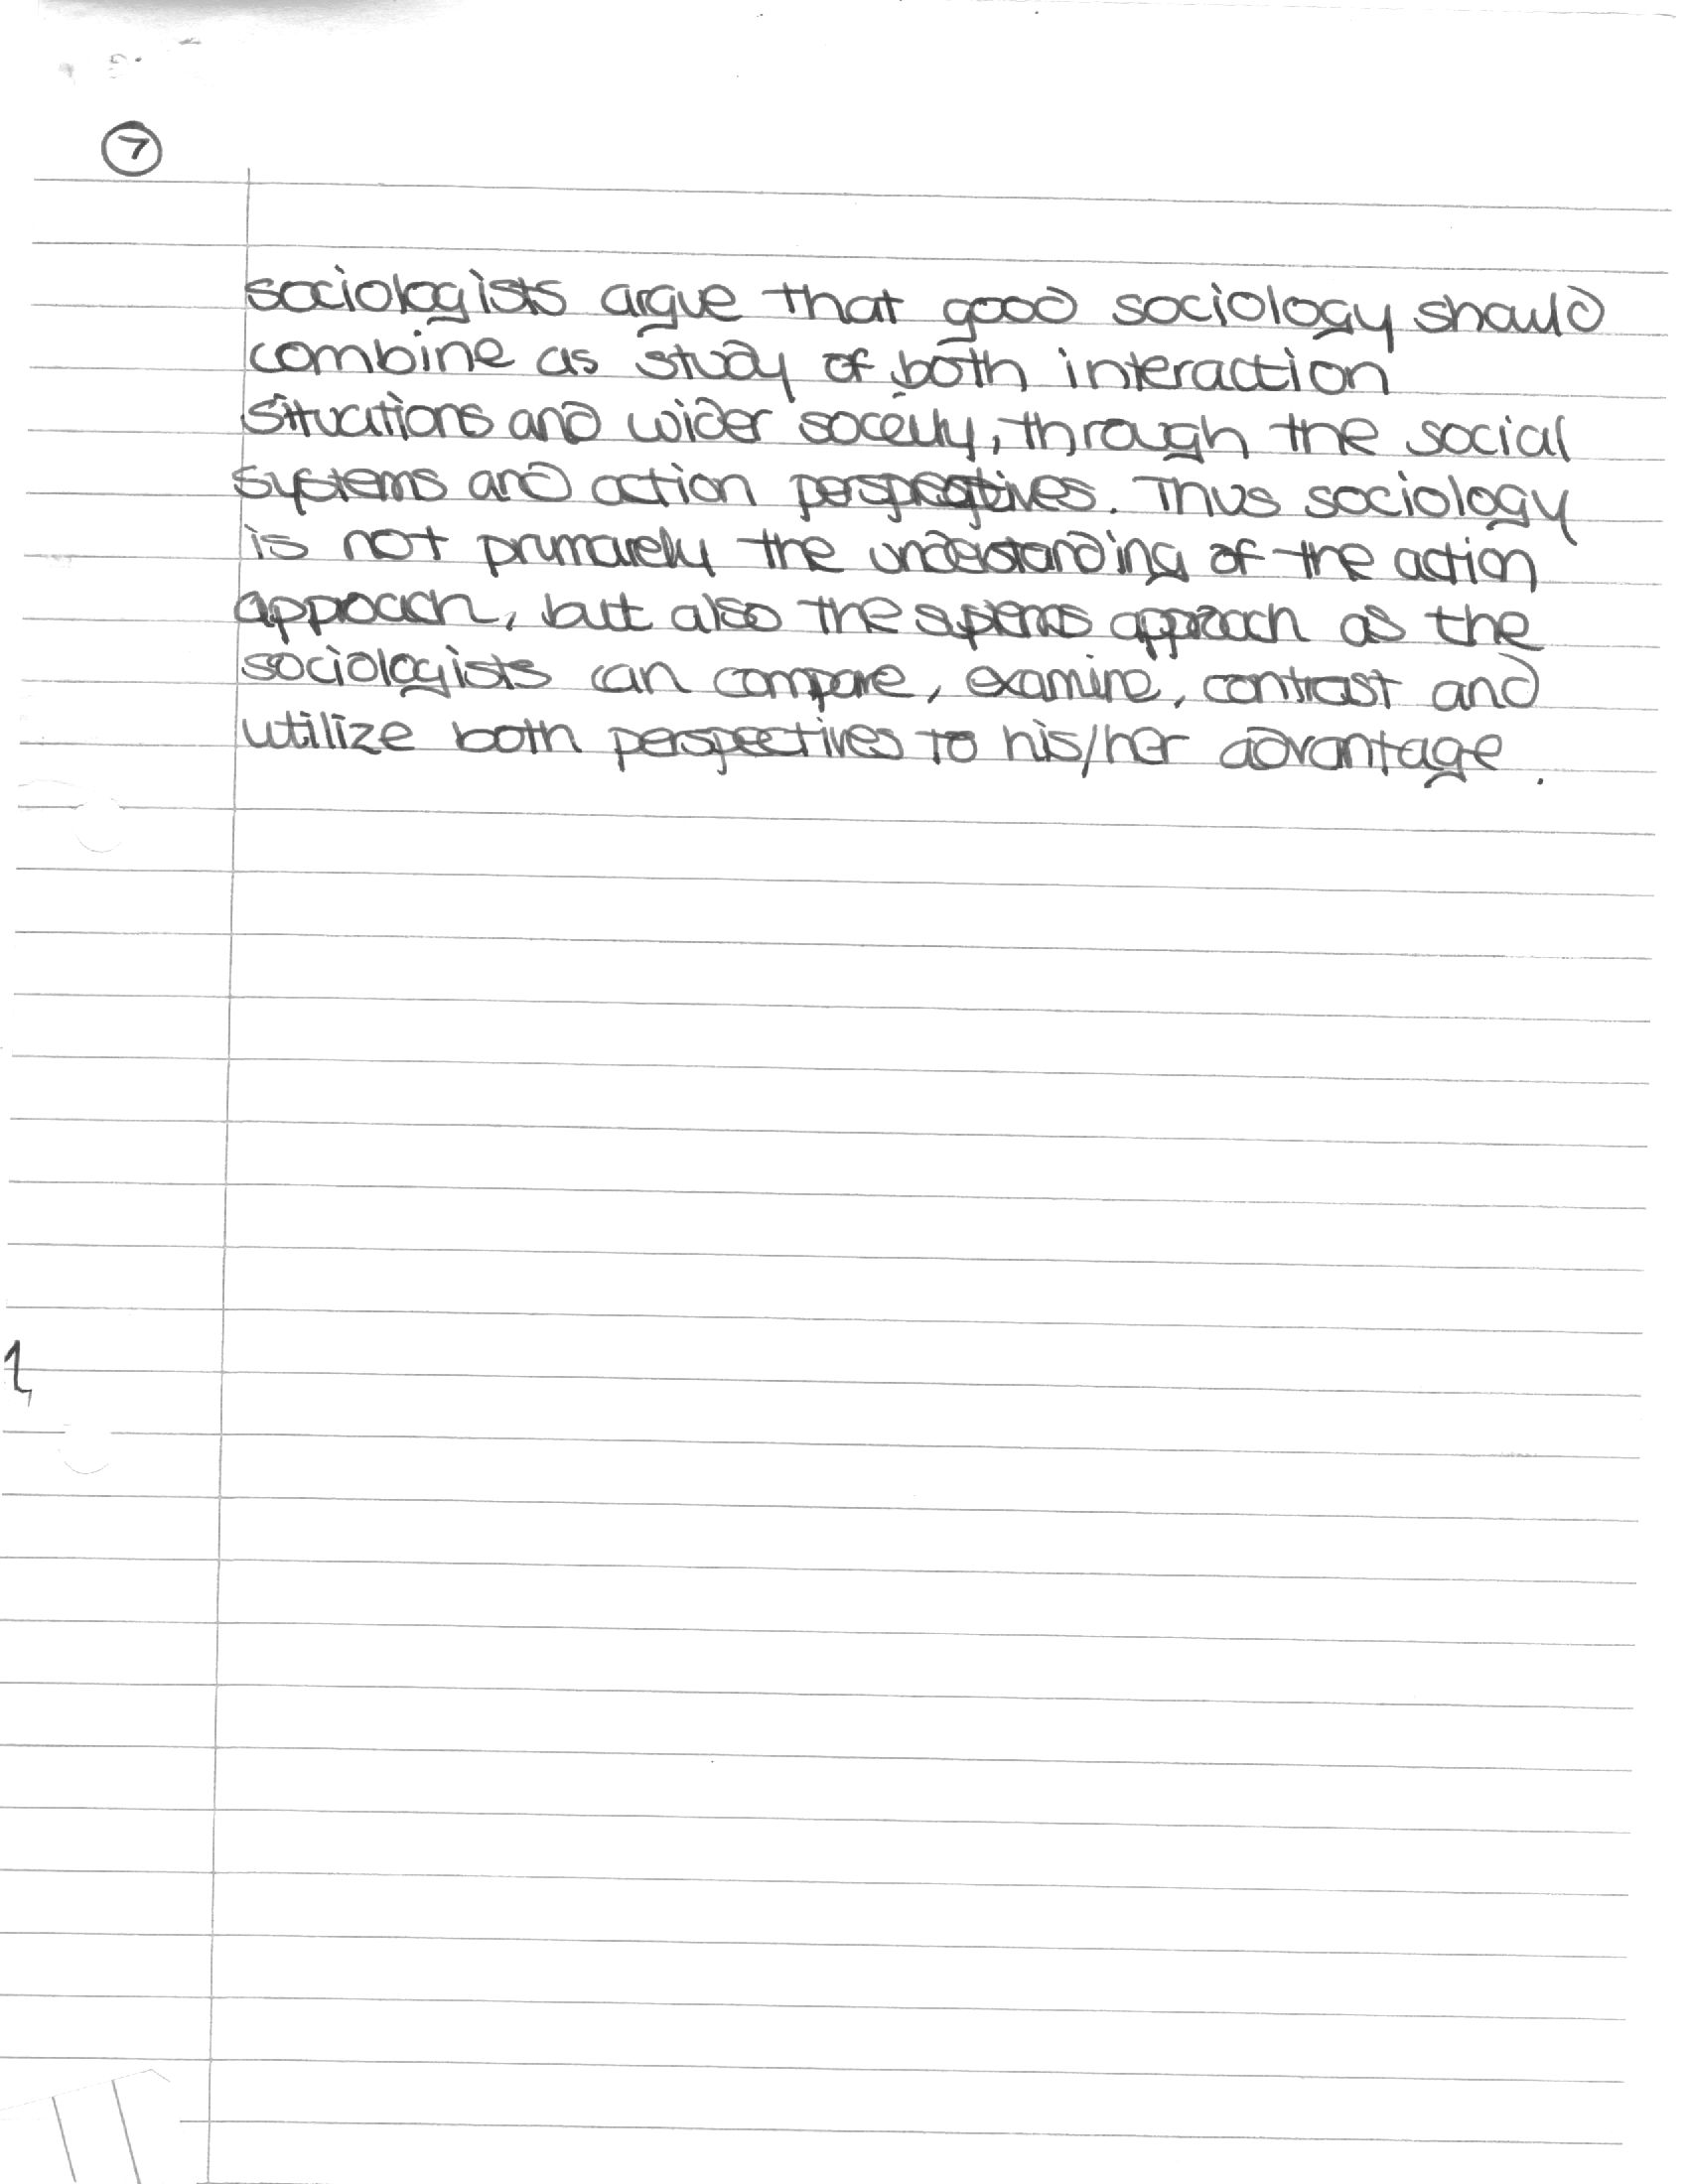 7
sociologists argue that good sociology should
combine as study of both interaction
situations and wider soceity, through the social
systems and action perspectives. Thus sociology
is not primarely the understanding of the action
approach, but also the systems approach as the
sociologists can compare, examine, contrast and
utilize both perspectives to his/her advantage.